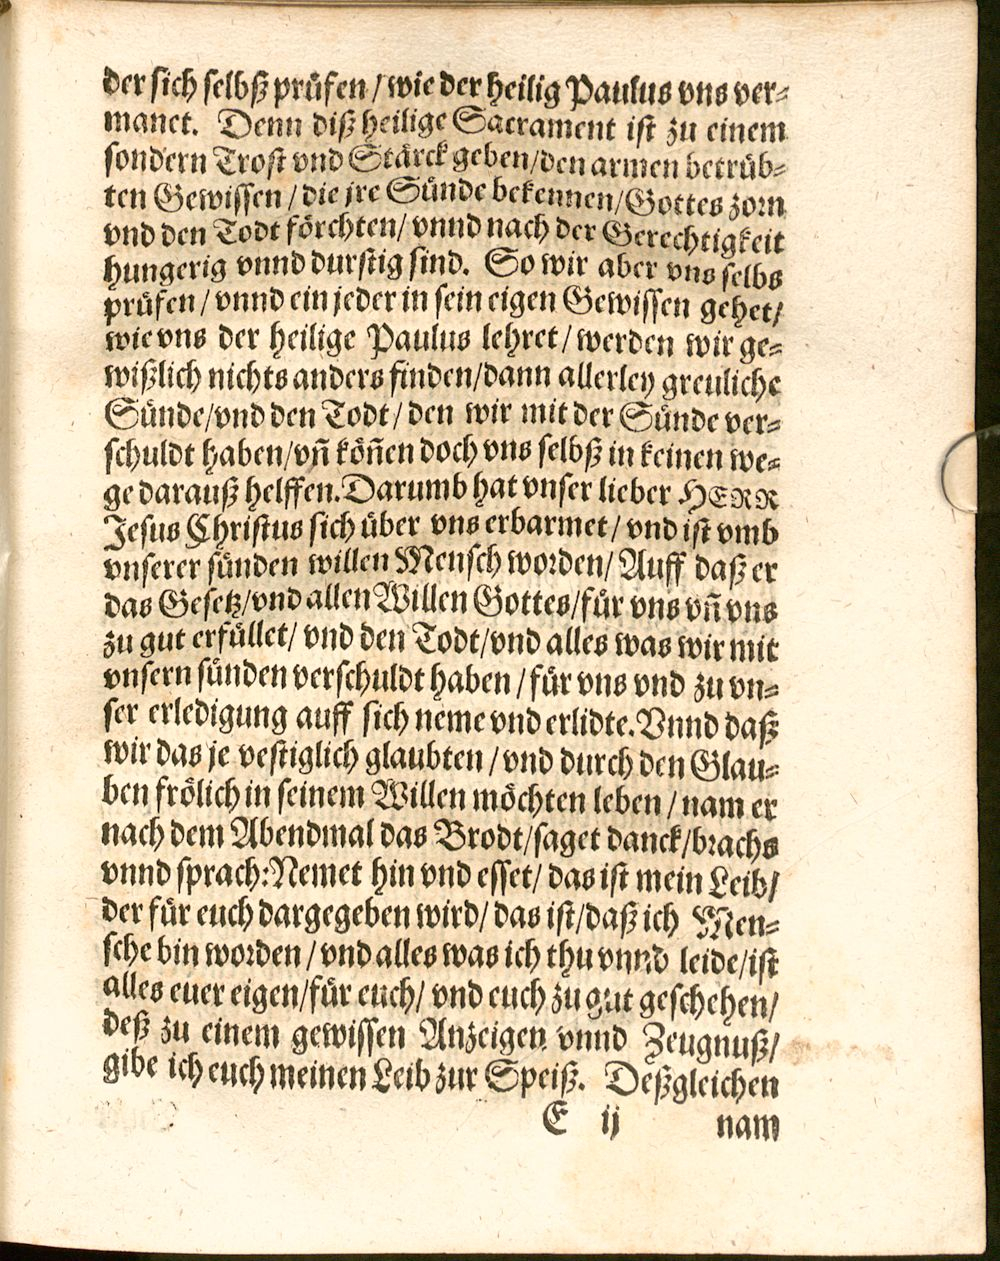 der sich selbß prüfen / wie der heilig Paulus vns ver-
manet. Denn diß heilige Sacrament ist zu einem
sondern Trost vnd Stärck geben/den armen betrüb-
ten Gewissen / die jre Sünde bekennen/Gottes zorn
vnd den Todt förchten/ vnnd nach der Gerechtigkeit
hungerig vnnd durstig sind. So wir aber vns selbs
prüfen / vnnd ein jeder in sein eigen Gewissen gehet/
wie vns der heilige Paulus lehret / werden wir ge-
wißlich nichts anders finden/dann allerley greuliche
Sünde/vnd den Todt / den wir mit der Sünde ver-
schuldt haben/vñ köñen doch vns selbß in keinen we-
ge darauß helffen.Darumb hat vnser lieber HERR
Jesus Christus sich über vns erbarmet / vnd ist vmb
vnserer sünden willen Mensch worden/ Auff daß er
das Gesetz/vnd allen Willen Gottes/für vns vñ vns
zu gut erfüllet/ vnd den Todt/vnd alles was wir mit
vnsern sünden verschuldt haben / für vns vnd zu vn-
ser erledigung auff sich neme vnd erlidte.Vnnd daß
wir das je vestiglich glaubten / vnd durch den Glau-
ben frölich in seinem Willen möchten leben / nam er
nach dem Abendmal das Brodt/saget danck/brachs
vnnd sprach:Nemet hin vnd esset/ das ist mein Leib/
der für euch dargegeben wird/ das ist/daß ich Men-
sche bin worden / vnd alles was ich thu vnnd leide/ist
alles euer eigen/für euch/ vnd euch zu gut geschehen/
deß zu einem gewissen Anzeigen vnnd Zeugnuß/
gibe ich euch meinen Leib zur Speiß. Deßgleichen
E ij nam